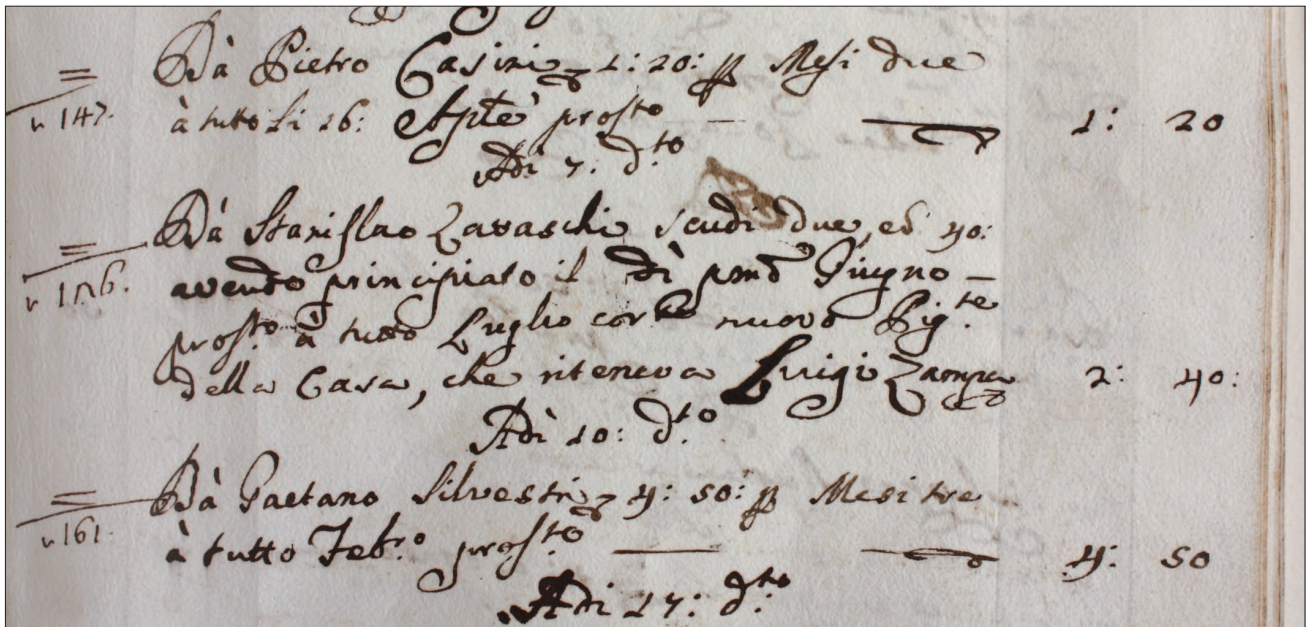 Dà Pietro Casini 1: 20: p Mesi due
n 147. à tutto li 26: Aple pross.to 1: 20
Adì 7: d.to
Dà Stanislao Zavaschi scudi due, ed 40:
n 156. avendo principiato il dì pmo Giugno
pross.to à tutto Luglio corte nuovo Pig.te
della Casa, che riteneva Luigi Zampa 2: 40:
Adì 10: d.to
Dà Gaetano Silvestri 4: 50: p Mesi tre
n 161. à tutto Feb.o pross.to 4: 50
Adì 17: d.to